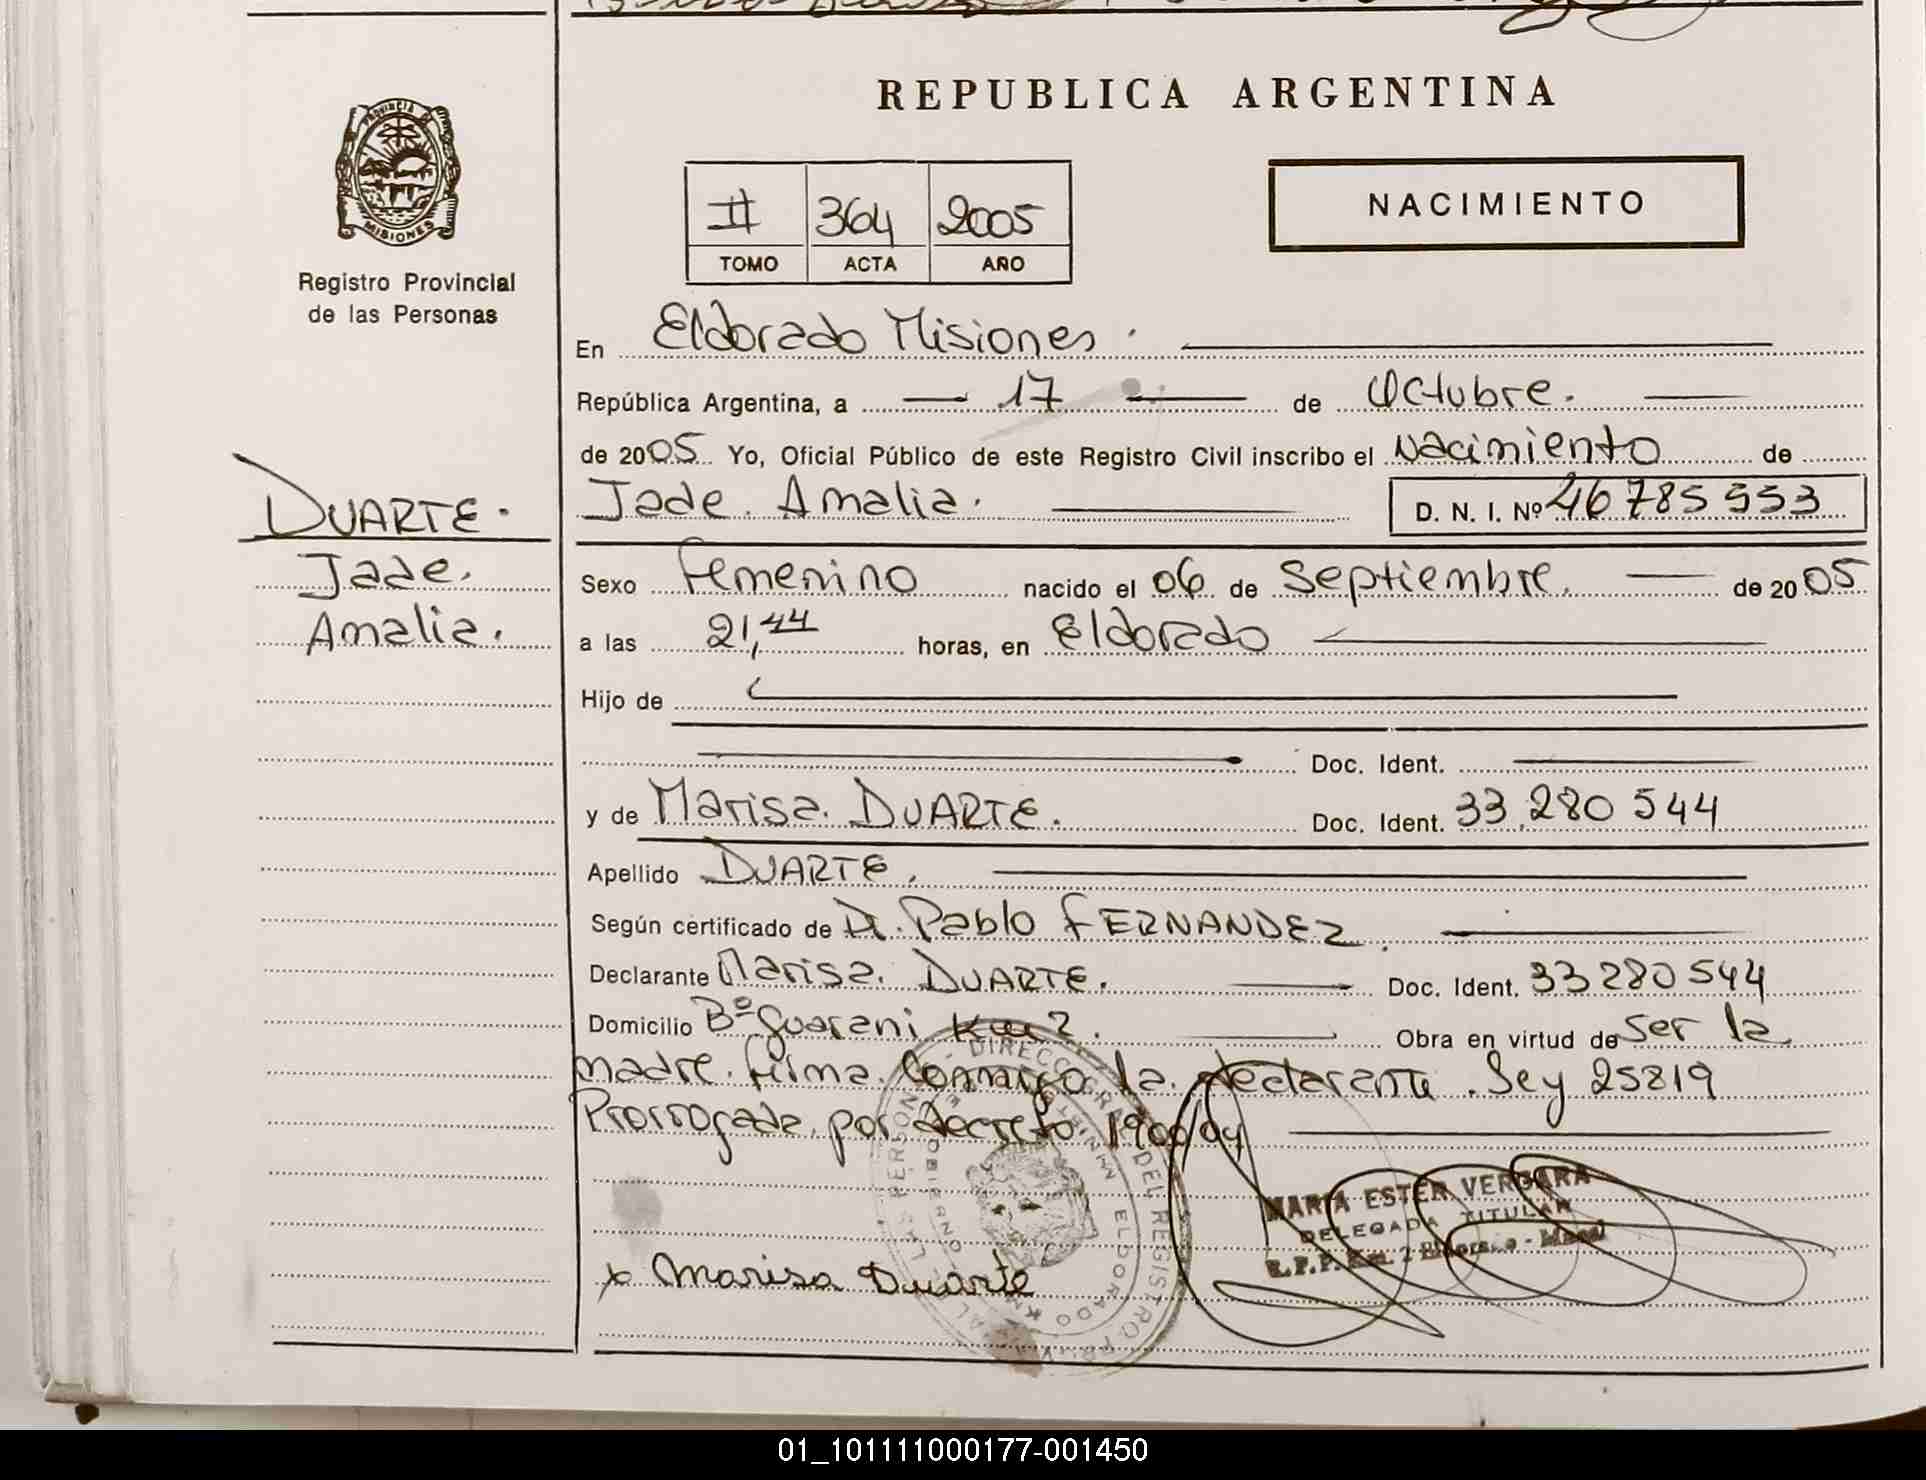 REPUBLICA ARGENTINA
PROVINCIA DE
MISIONES
Registro Provincial
de las Personas
II 364 2005
TOMO ACTA AÑO
NACIMIENTO
En Eldorado Misiones.
República Argentina, a 17 de Octubre.
de 2005 Yo, Oficial Público de este Registro Civil inscribo el Nacimiento de
Jade. Amalia. D. N. I. Nº 46 785 553
DUARTE.
Jade.
Amalia.
Sexo Femenino nacido el 06 de Septiembre. de 2005
a las 21,44 horas, en Eldorado
Hijo de
Doc. Ident.
y de Marisa. DUARTE. Doc. Ident. 33.280 544
Apellido DUARTE.
Según certificado de Dr. Pablo FERNANDEZ.
Declarante Marisa. DUARTE. Doc. Ident. 33 280 544
Domicilio Bº Guarani Km 2. Obra en virtud de ser la
madre. firma. Conmigo la. declarante. Ley 25819
Prorrogada. por decreto. 1900/04
MARIA ESTER VERGARA
DELEGADA TITULAR
R.P.P. Km. 2 Eldorado -
x Marisa Duarte
01_101111000177-001450